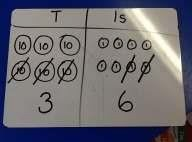 T 1s
10 10 10 1 1 1 1
10 10 10 1 1 1 1
3 6